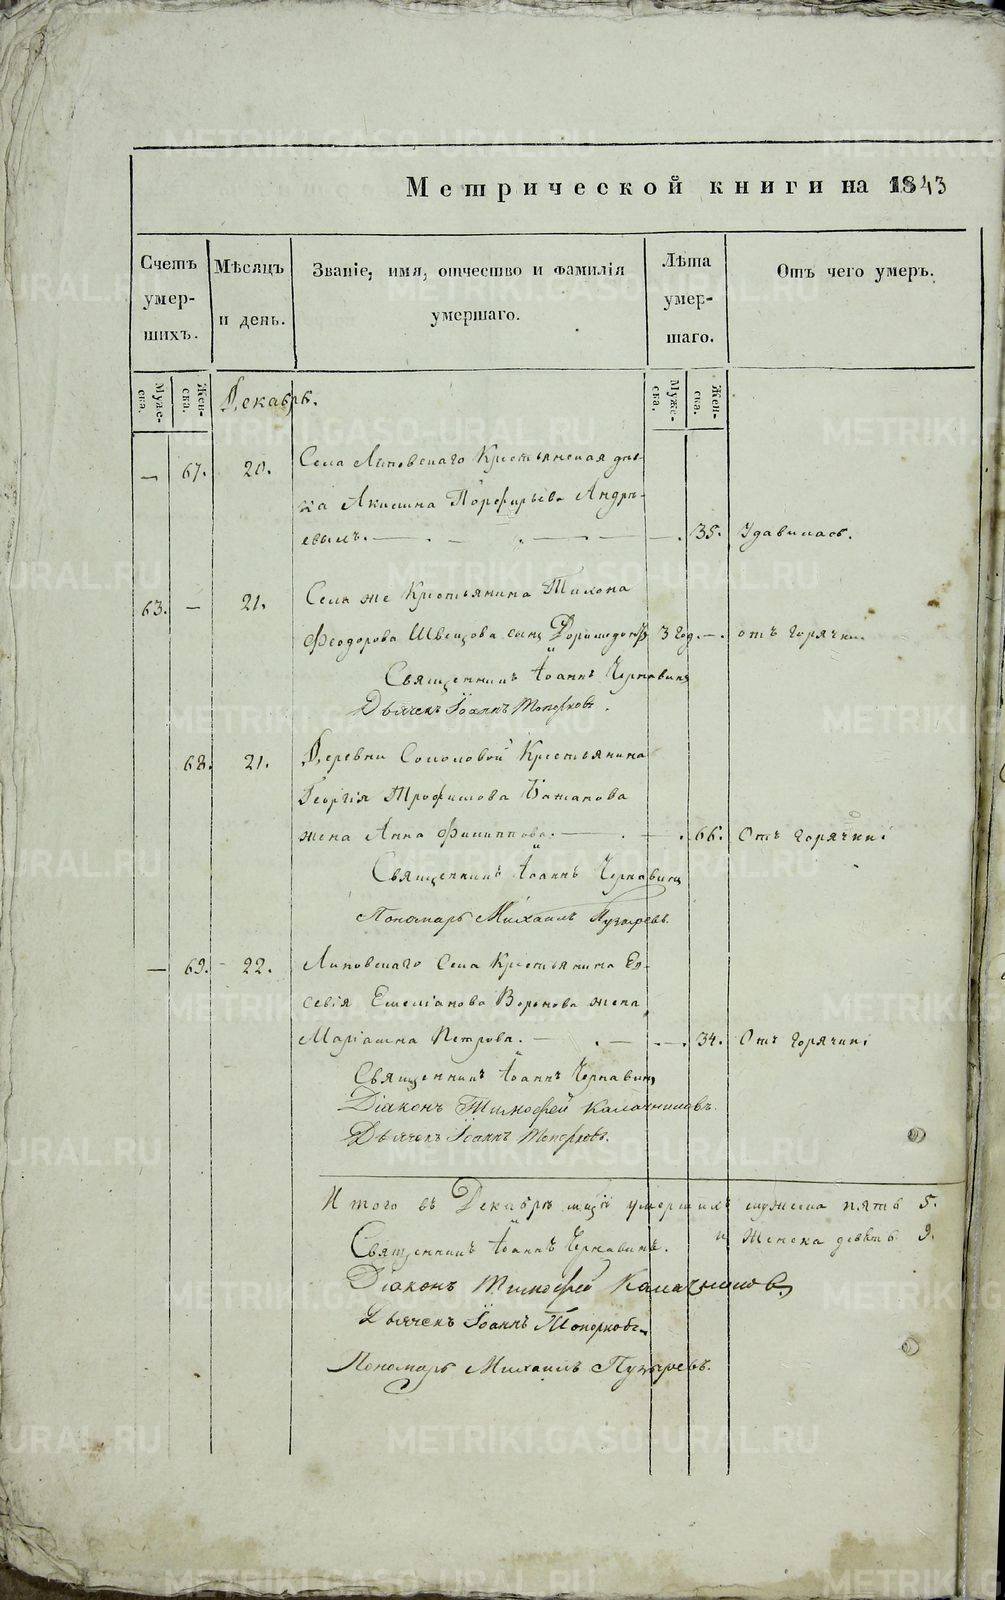 Метрической книги на 1843
Счетъ умер-шихъ.
Мѣсяцъ и день.
Званіе, имя, отчество и фамилія умершаго.
Лѣта умер-шаго.
Отъ чего умеръ.
Муже-ска.
Жен-ска.
Муже-ска.
Жен-ска.
Декабрь.
— 67. 20. Села Липовскаго Крестьянская
ка Акилина Порфирьева Андрѣ-
евыхъ. 35. Удавилась.
63. — 21. Села же Крестьянина Тихона
Феодорова Швецова сынъ 3 год. отъ горячки.
Священникъ Іоаннъ Чернавинъ
Дьячекъ Іоаннъ Топорковъ.
68. 21. Деревни Соколовой Крестьянина
Георгія Трофимова
жена Анна Филиппова. 66. Отъ горячки
Священникъ Іоаннъ Чернавинъ
Пономарь Михаилъ Пузыревъ.
— 69. 22. Липовскаго Села Крестьянина Ев-
севія Емеліанова Воронова жена
Маріамна Петрова. 34. Отъ горячки
Священникъ Іоаннъ Чернавинъ
Діаконъ Тимофей Калачниковъ.
Дьячекъ Іоаннъ Топорковъ.
Итого въ Декабрѣ мцѣ умершихъ мужеска пять 5.
и Женска девять 9.
Священникъ Іоаннъ Чернавинъ.
Діаконъ Тимофей Калачниковъ
Дьячекъ Іоаннъ Топорковъ
Пономарь Михаилъ Пузыревъ.
METRIKI.GASO-URAL.RU